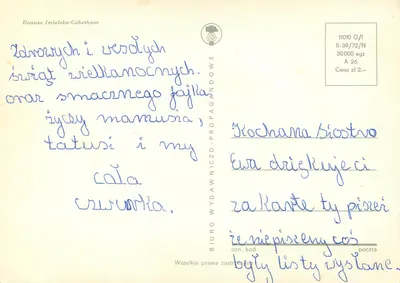 Danuta Imielska-Gebethner
Zdrowych i wesołych
świąt wielkanocnych.
oraz smacznego jajka
życzy mamusia,
tatuś i my
cała
czwurka.
BIURO WYDAWNICZO-PROPAGANDOWE
11010 O/I
II-59/72/N
30.000 egz
A 26
Cena zł 2.-
Kochana siostro
Ewo dziękuje ci
za kartke ty piszesz
że niepiszemy coś
były listy wysłane.
Wszelkie prawa zastrzeżone
ozn. kod
poczta